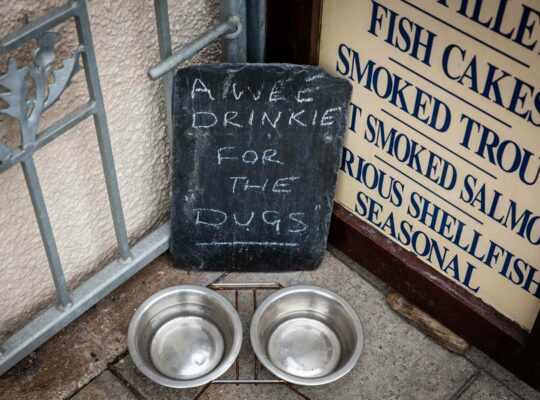 A WEE
DRINKIE
FOR
THE
"DUGS"
FISH CAKES
SMOKED TROU
T SMOKED SALMO
RIOUS SHELLFISH
SEASONAL